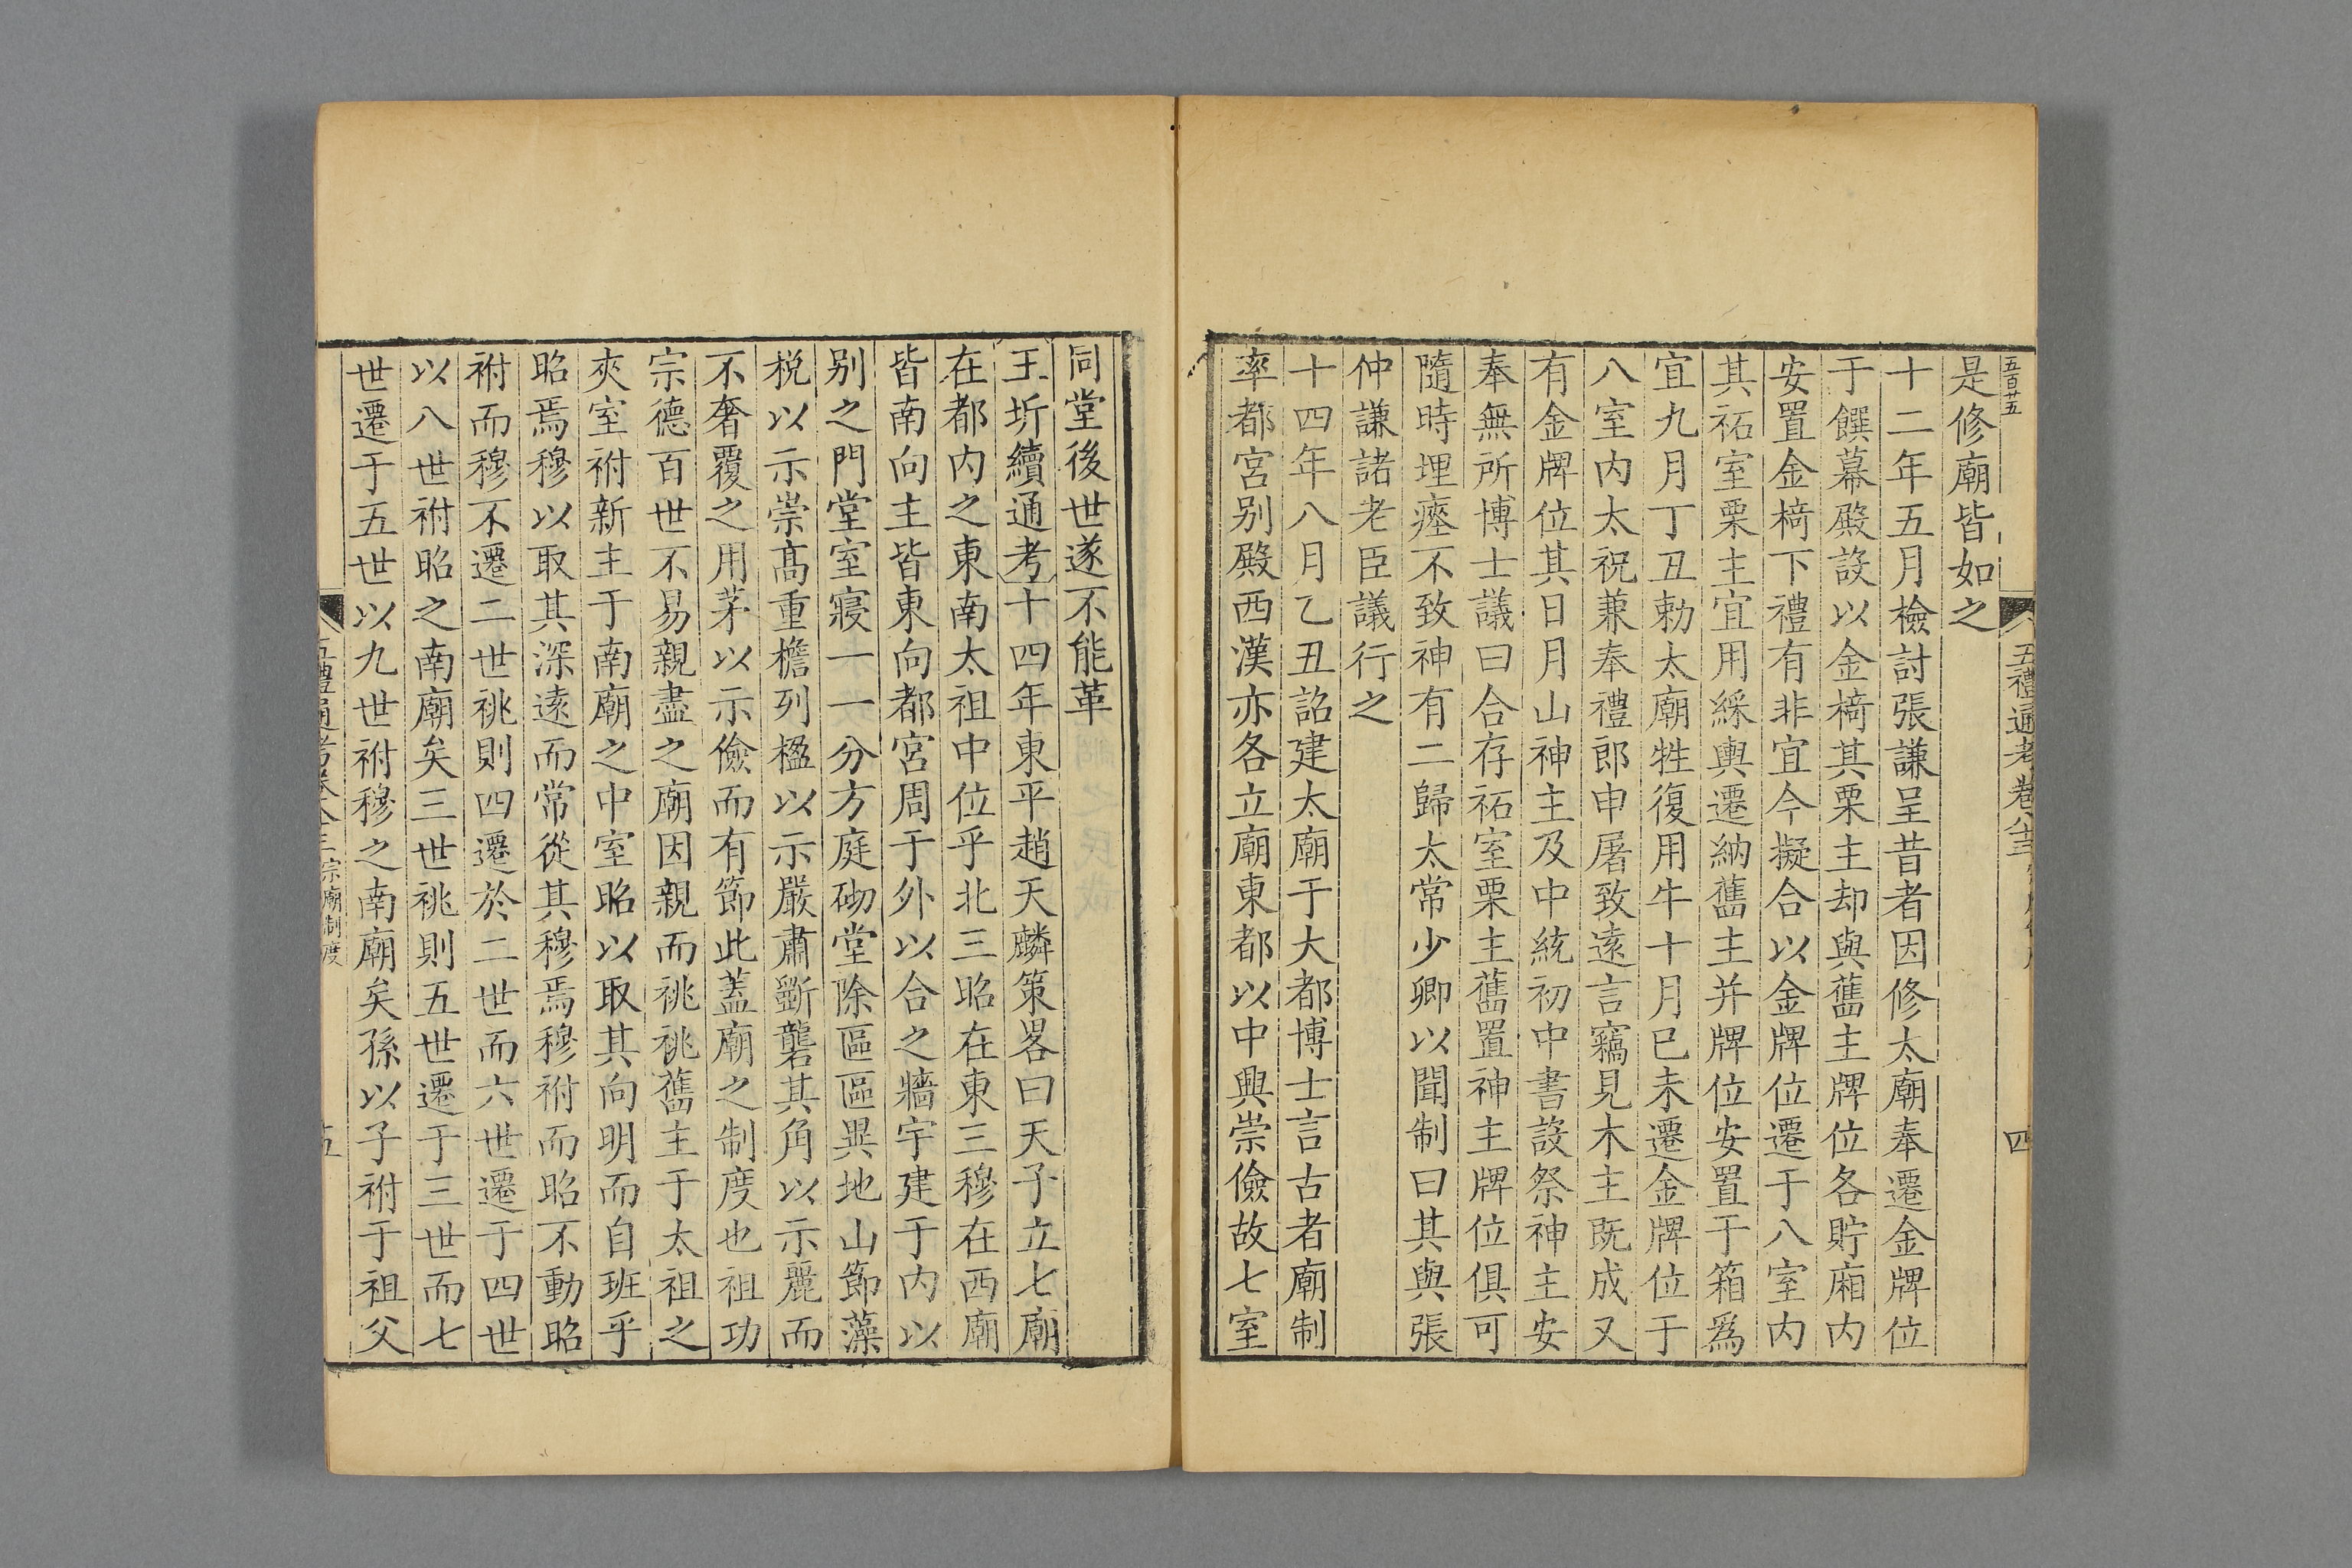 五百廿五
五禮通考卷八十三
四
是修廟皆如之
十二年五月檢討張謙呈昔者因修太廟奉遷金牌位
于饌幕殿設以金椅其栗主却與舊主牌位各貯廂内
安置金椅下禮有非宜今擬合以金牌位遷于八室内
其祏室栗主宜用綵輿遷納舊主并牌位安置于箱爲
宜九月丁丑勅太廟牲復用牛十月已未遷金牌位于
八室内太祝兼奉禮郎申屠致遠言竊見木主既成又
有金牌位其日月山神主及中統初中書設祭神主安
奉無所博士議曰合存祏室栗主舊置神主牌位俱可
隨時埋瘞不致神有二歸太常少卿以聞制曰其與張
仲謙諸老臣議行之
十四年八月乙丑詔建太廟于大都博士言古者廟制
率都宮别殿西漢亦各立廟東都以中興崇儉故七室
同堂後世遂不能革
王圻續通考十四年東平趙天麟策畧曰天子立七廟
在都内之東南太祖中位乎北三昭在東三穆在西廟
皆南向主皆東向都宮周于外以合之牆宇建于内以
别之門堂室寢一一分方庭砌堂除區區異地山節藻
棁以示崇高重檐列楹以示嚴肅斵礱其角以示麗而
不奢覆之用茅以示儉而有節此蓋廟之制度也祖功
宗德百世不易親盡之廟因親而祧祧舊主于太祖之
夾室祔新主于南廟之中室昭以取其向明而自班乎
昭焉穆以取其深遠而常從其穆焉穆祔而昭不動昭
祔而穆不遷二世祧則四遷於二世而六世遷于四世
以八世祔昭之南廟矣三世祧則五世遷于三世而七
世遷于五世以九世祔穆之南廟矣孫以子祔于祖父
五禮通考卷八十三 宗廟制度
五